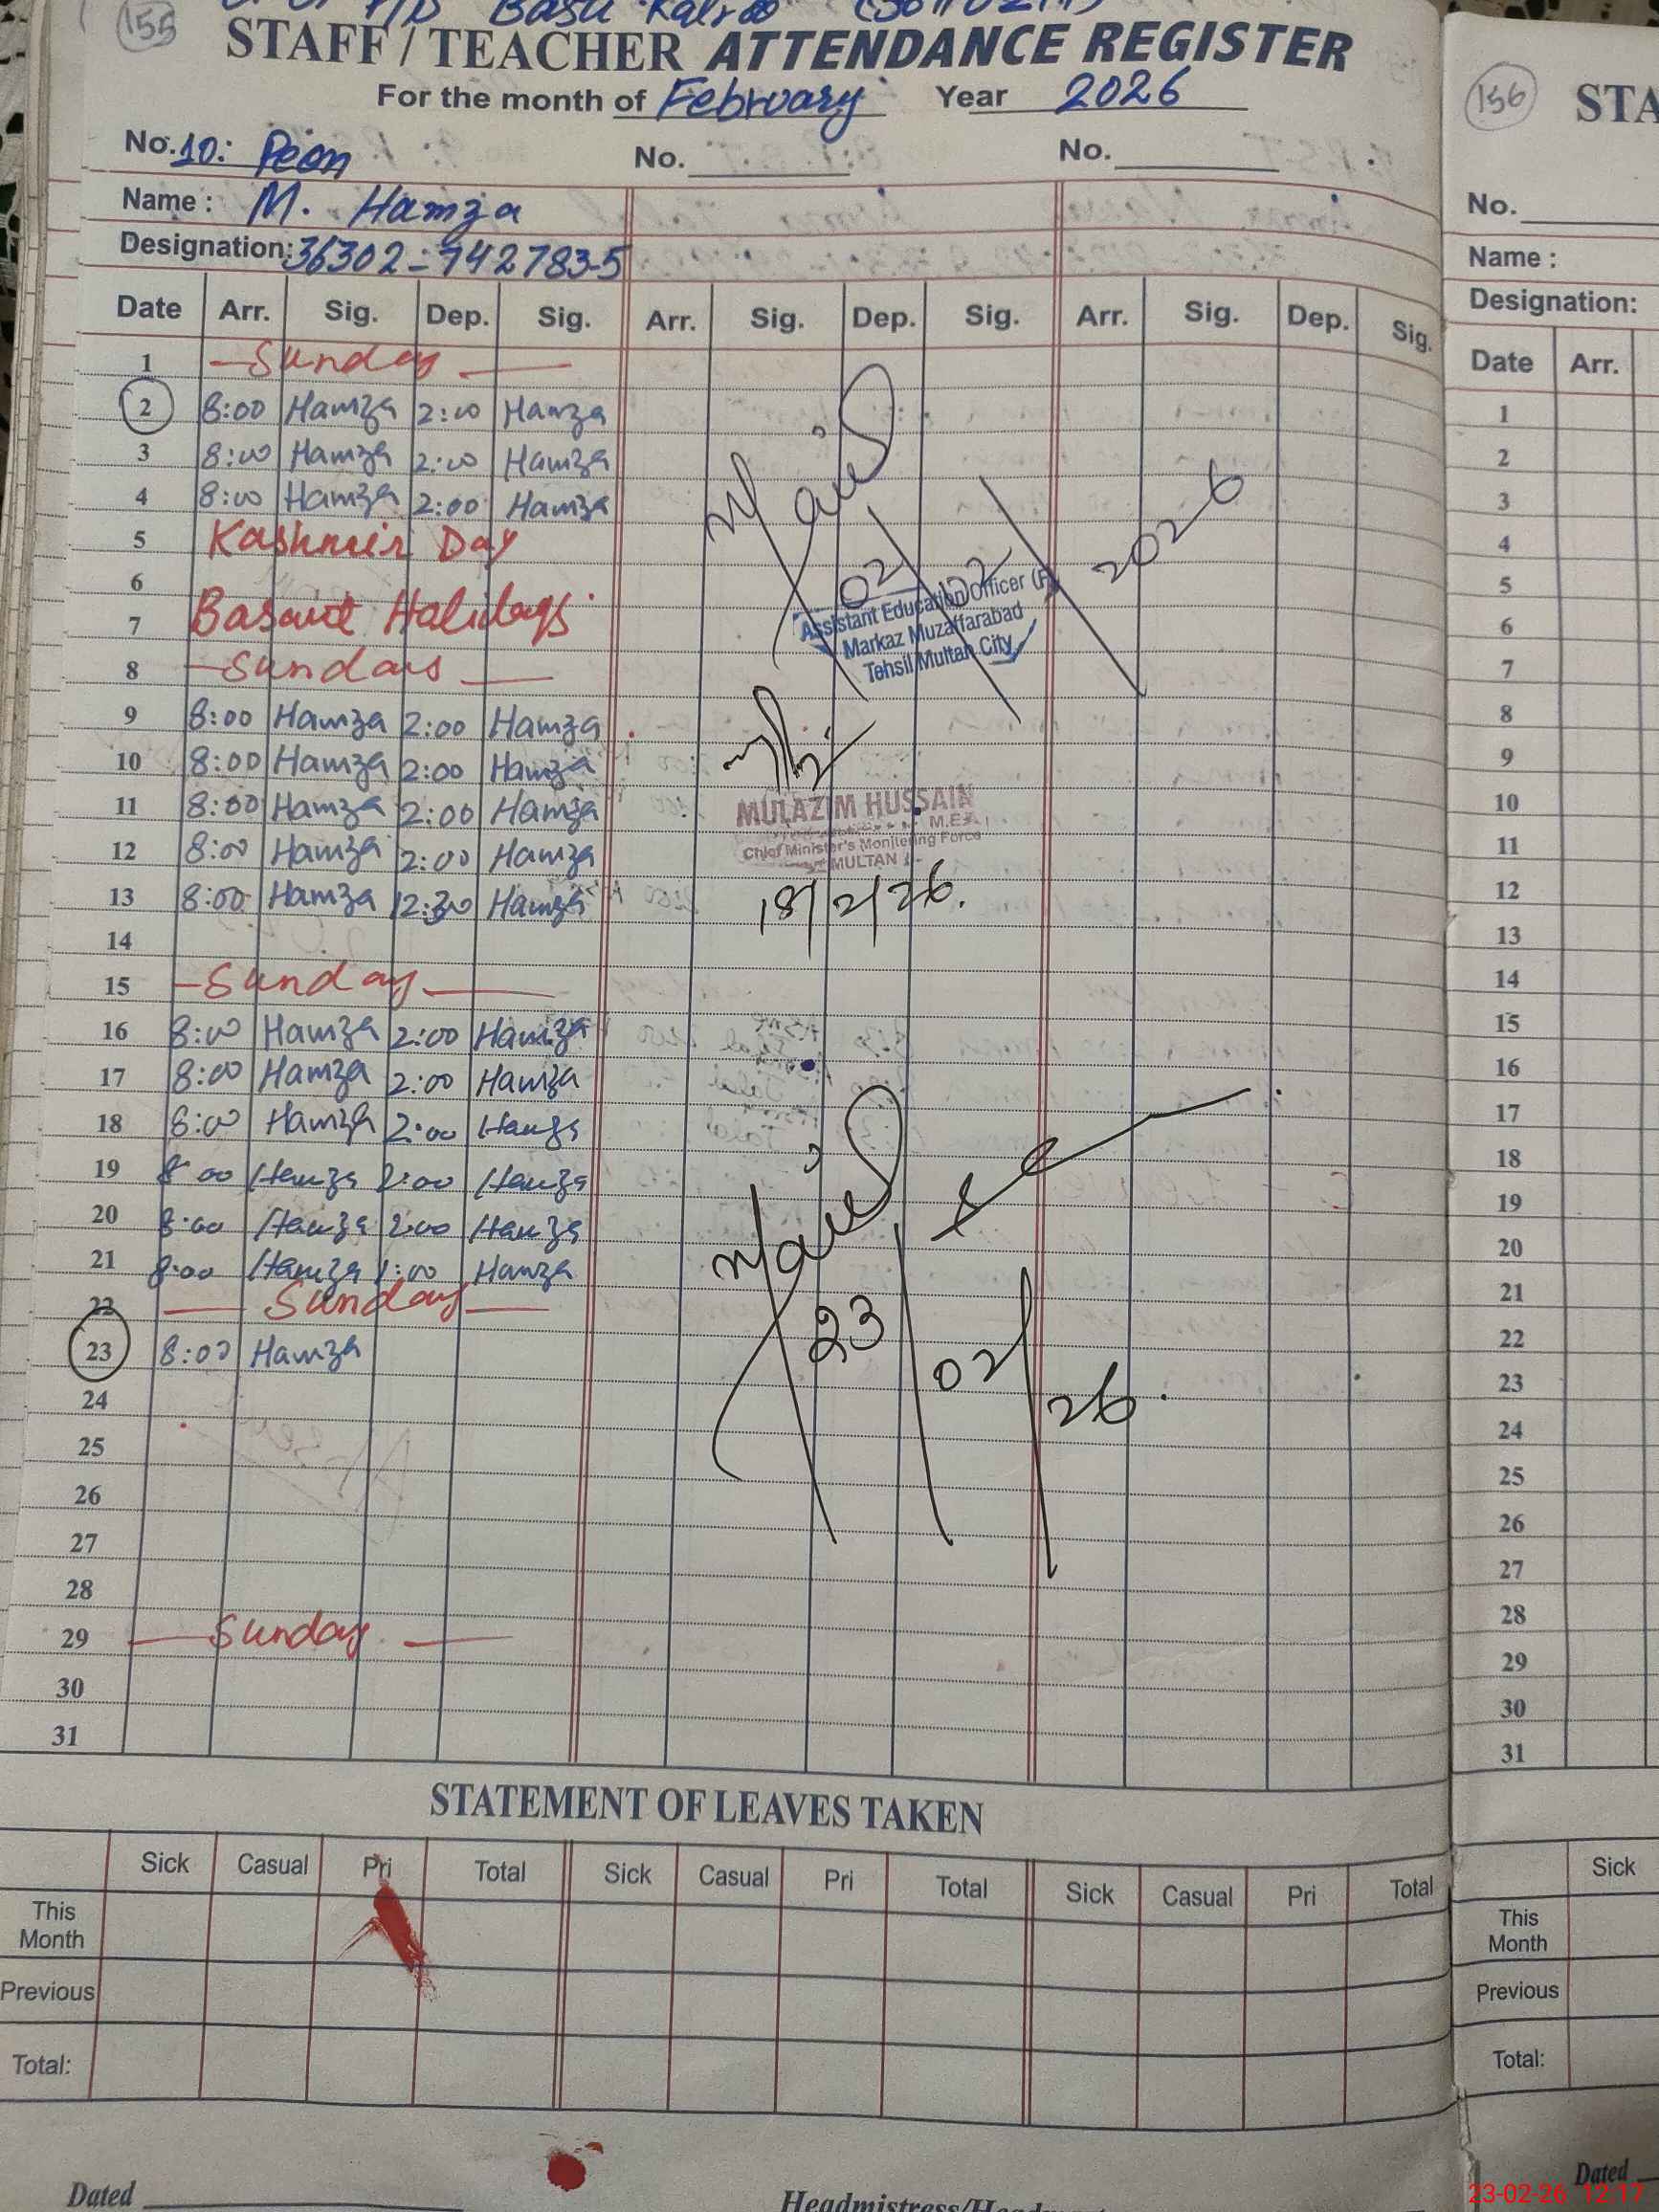 155
STAFF / TEACHER ATTENDANCE REGISTER
For the month of February Year 2026
No. 10: Peon No. No.
Name : M. Hamza
Designation: 36302-7427835
Date Arr. Sig. Dep. Sig. Arr. Sig. Dep. Sig. Arr. Sig. Dep. Sig.
1 Sunday
2 8:00 Hamza 2:00 Hamza
3 8:00 Hamza 2:00 Hamza
4 8:00 Hamza 2:00 Hamza
5 Kashmir Day
6
7 Basant Halidays
8 Sundays
9 8:00 Hamza 2:00 Hamza
10 8:00 Hamza 2:00 Hamza
11 8:00 Hamza 2:00 Hamza
12 8:00 Hamza 2:00 Hamza
13 8:00 Hamza 12:30 Hamza
14
15 Sunday
16 8:00 Hamza 2:00 Hamza
17 8:00 Hamza 2:00 Hamza
18 8:00 Hamza 2:00 Hamza
19 8:00 Hamza 2:00 Hamza
20 8:00 Hamza 2:00 Hamza
21 8:00 Hamza 1:00 Hamza
22 Sunday
23 8:00 Hamza
24
25
26
27
28
29 Sunday
30
31
02/02/2026
Assistant Education Officer (F)
Markaz Muzaffarabad
Tehsil Multan City
MULAZIM HUSSAIN
Chief Minister's Monitering Force
MULTAN
18/2/26.
23/02/26.
STATEMENT OF LEAVES TAKEN
Sick Casual Pri Total Sick Casual Pri Total Sick Casual Pri Total
This Month
Previous
Total:
Dated
156
STA
No.
Name :
Designation:
Date Arr.
1
2
3
4
5
6
7
8
9
10
11
12
13
14
15
16
17
18
19
20
21
22
23
24
25
26
27
28
29
30
31
Sick
This Month
Previous
Total:
Dated
23-02-26 12:17